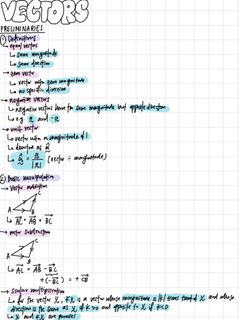 VECTORS
PRELIMINARIES
① Definitions
→ equal vectors
↳ same magnitude
↳ same direction
→ zero vector
↳ vector with zero magnitude
↳ no specific direction
→ negative vectors
↳ negative vectors have the same magnitude but opposite direction
↳ e.g. a and -a
→ unit vector
↳ vector with a magnitude of 1
↳ denoted as
↳ (vector ÷ magnitude)
② Basic manipulation
→ Vector addition
C
A B
↳ AC = AB + BC
→ vector subtraction
C
A B
↳ AC = AB - BC
+(-BC) = + CB
→ Scalar multiplication
↳ for the vector x, kx is a vector whose magnitude is |k| times that of x and whose
direction is the same as x if k>0 and opposite to x if k<0
↳ x and kx are parallel